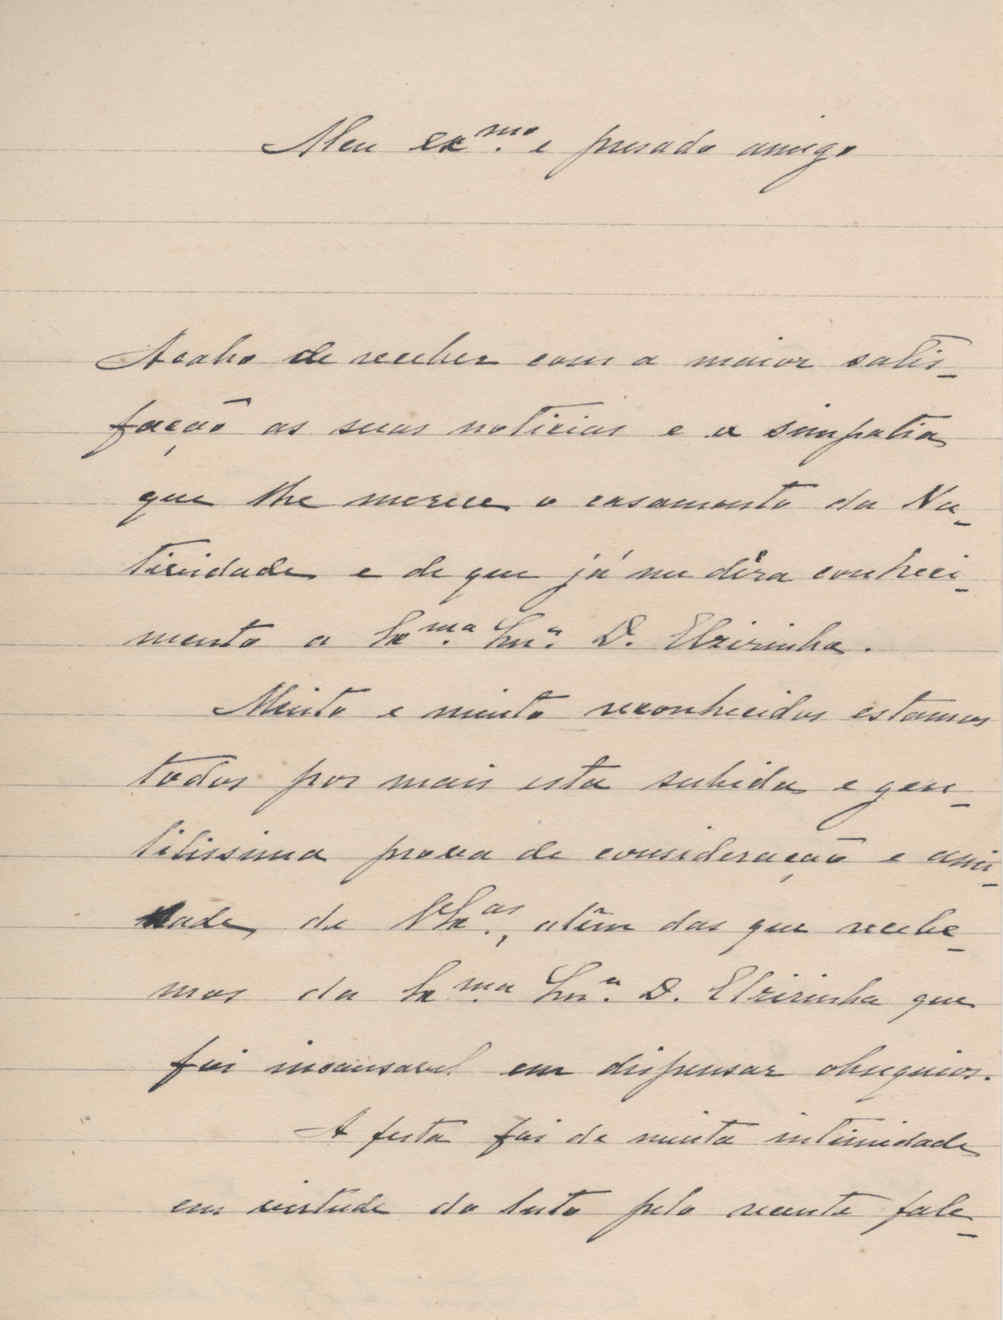 Meu exmo. e presado amigo
Acabo de receber com a maior satis-
fação as suas noticias e a simpatia
que lhe merece o casamento da Na-
tividade e de que já me déra conheci-
mento a Exma. Snra. D. Elzirinha.
Muito e muito reconhecidos estamos
todos por mais esta subida e gen-
tilissima prova de consideração e ami-
zade, de VExas., além das que recebe-
mos da Exma. Snra. D. Elzirinha que
foi incansavel em dispensar obsequios.
A festa foi de muita intimidade
em virtude do luto pelo recente fale-